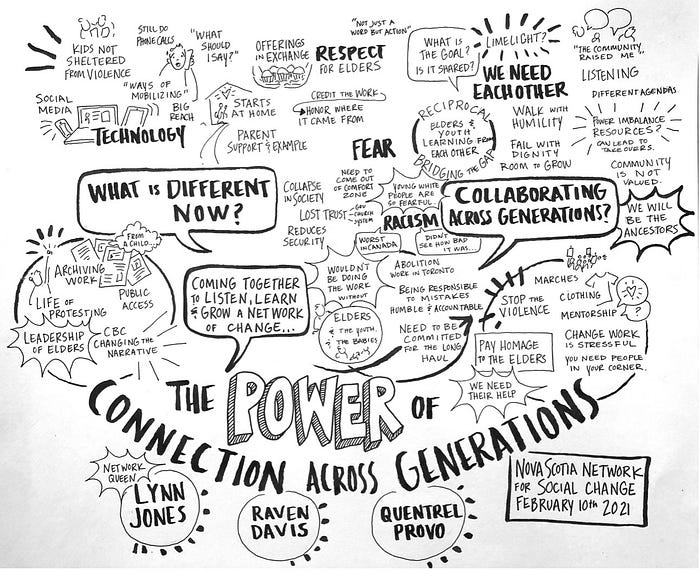 KIDS NOT
SHELTERED
FROM VIOLENCE
STILL DO
PHONE CALLS
"WHAT
SHOULD
I SAY?"
"WAYS OF
MOBILIZING"
BIG
REACH
SOCIAL
MEDIA
TECHNOLOGY
OFFERINGS
IN EXCHANGE
RESPECT
FOR ELDERS
"NOT JUST A
WORD BUT ACTION"
STARTS
AT HOME
PARENT
SUPPORT & EXAMPLE
CREDIT THE WORK
HONOR WHERE
IT CAME FROM
WHAT IS
THE GOAL?
IS IT SHARED?
LIMELIGHT?
WE NEED
EACHOTHER
"THE COMMUNITY
RAISED ME"
LISTENING
DIFFERENT AGENDAS
RECIPROCAL
ELDERS &
YOUTH
LEARNING FROM
EACH OTHER
BRIDGING THE GAP
WALK WITH
HUMILITY
FAIL WITH
DIGNITY
ROOM TO GROW
POWER IMBALANCE
RESOURCES?
CAN LEAD TO
TAKE OVERS.
COMMUNITY
IS NOT
VALUED.
WE WILL
BE THE
ANCESTORS
FEAR
WHAT IS DIFFERENT
NOW?
COLLAPSE
IN SOCIETY
LOST TRUST
GOV
CHURCH
SYSTEM
REDUCES
SECURITY
NEED TO
COME OUT
OF COMFORT
ZONE
YOUNG WHITE
PEOPLE ARE
SO FEARFUL
RACISM
WORST
IN CANADA
DIDN'T
SEE HOW BAD
IT WAS...
COLLABORATING
ACROSS GENERATIONS?
FROM
A CHILD...
ARCHIVING
WORK
PUBLIC
ACCESS
LIFE OF
PROTESTING
LEADERSHIP
OF ELDERS
CBC
CHANGING THE
NARRATIVE
COMING TOGETHER
TO LISTEN, LEARN
& GROW A NETWORK
OF CHANGE...
WOULDN'T
BE DOING
THE WORK
WITHOUT
ELDERS
& THE YOUTH,
THE BABIES
ABOLITION
WORK IN TORONTO
BEING RESPONSIBLE
TO MISTAKES
HUMBLE & ACCOUNTABLE
NEED TO BE
COMMITTED
FOR THE LONG
HAUL
MARCHES
STOP THE
VIOLENCE
CLOTHING
MENTORSHIP?
PAY HOMAGE
TO THE ELDERS
CHANGE WORK
IS STRESSFUL
YOU NEED PEOPLE
IN YOUR CORNER.
WE NEED
THEIR HELP
THE POWER OF
CONNECTION ACROSS GENERATIONS
NETWORK
QUEEN
LYNN
JONES
RAVEN
DAVIS
QUENTREL
PROVO
NOVA SCOTIA NETWORK
FOR SOCIAL CHANGE
FEBRUARY 10th 2021